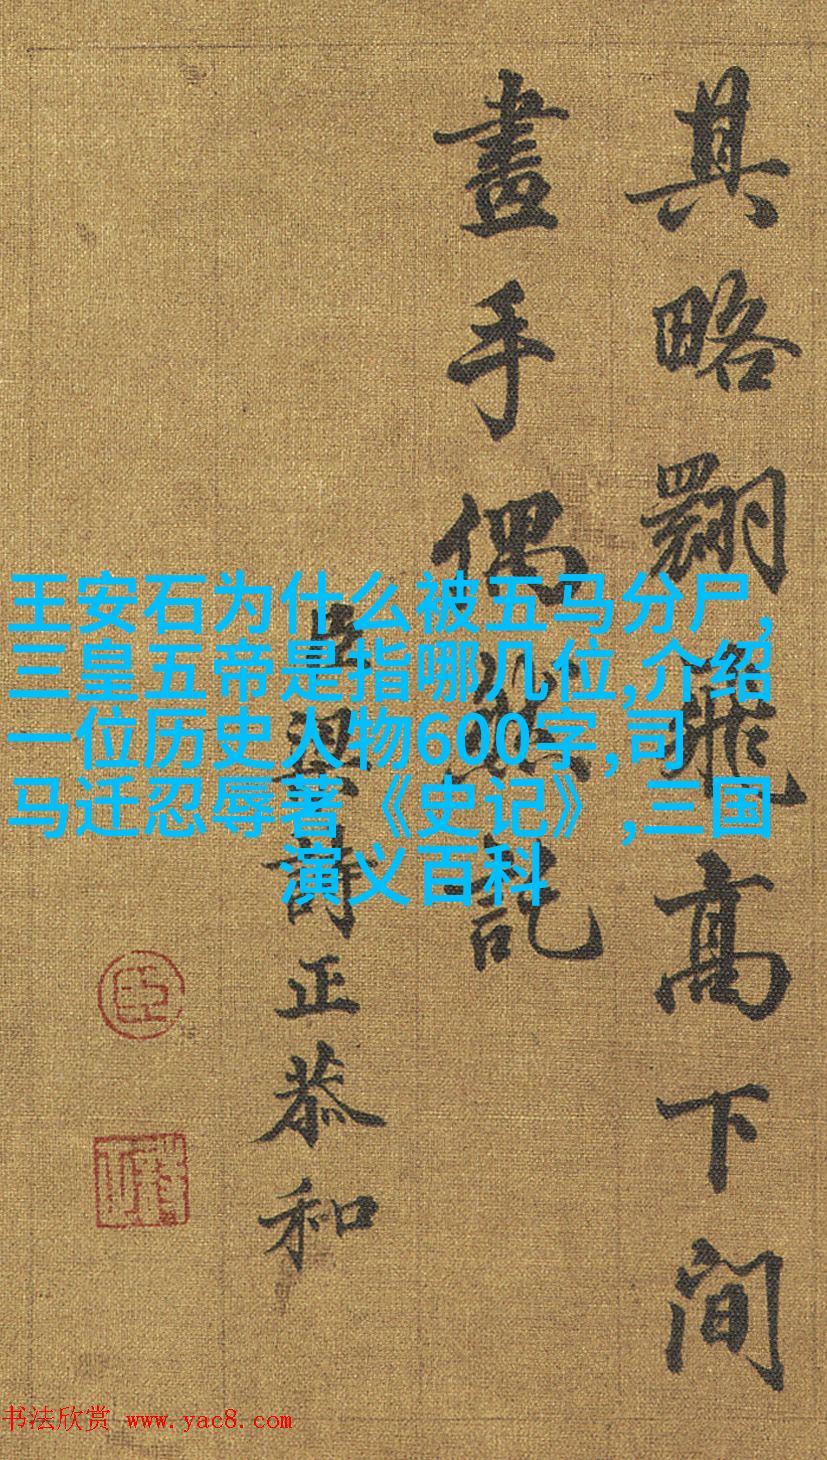 其略翾飛高下間
畫手偶然記
臣梁詩正恭和
臣
王安石为什么被五马分尸,
三皇五帝是指哪几位,介绍
一位历史人物600字,司
马迁忍辱著《史记》,三国
演义百科
书法欣赏 www.yac8.com